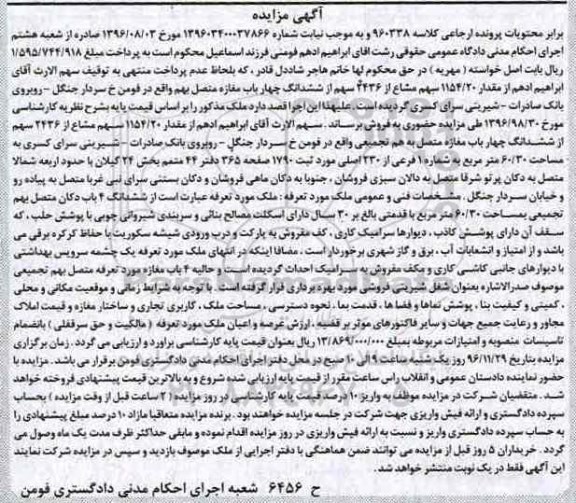 آگهی مزایده
برابر محتویات پرونده ارجاعی کلاسه ۹۶۰۳۳۸ و به موجب نیابت شماره ۱۳۹۶۰۳۴۰۰۰۳۷۸۶۶ مورخ ۱۳۹۶/۰۸/۰۳ صادره از شعبه هشتم
اجرای احکام مدنی دادگاه عمومی حقوقی رشت اقای ابراهیم ادهم فومنی فرزند اسماعیل محکوم است به پرداخت مبلغ ۱/۵۹۵/۷۴۴/۹۱۸
ریال بابت اصل خواسته ( مهریه ) در حق محکوم لها خانم هاجر شاددل قادر ، که بلحاظ عدم پرداخت منتهی به توقیف سهم الارث آقای
ابراهیم ادهم از مقدار ۱۱۵۴/۲۰ سهم مشاع از ۲۴۳۶ سهم از ششدانگ چهار باب مغازه متصل بهم واقع در فومن خ سردار جنگل - روبروی
بانک صادرات - شیرینی سرای کسری گردیده است . علیهذا این اجرا قصد دارد ملک مذکور را بر اساس قیمت پایه بشرح نظریه کارشناسی
مورخ ۱۳۹۶/۹۸/۳۰ طی مزایده حضوری به فروش برساند . سهم الارث آقای ابراهیم ادهم از مقدار ۱۱۵۴/۲۰ سهم مشاع از ۲۴۳۶ سهم
از ششدانگ چهار باب مغازه متصل به هم تجمیعی واقع در فومن خ سردار جنگل - روبروی بانک صادرات - شیرینی سرای کسری به
مساحت ۶۰/۳۰ متر مربع به شماره ۱ فرعی از ۲۳۰ اصلی مورد ثبت ۱۷۹۰ صفحه ۳۶۵ دفتر ۴۴ متمم بخش ۲۴ گیلان با حدود اربعه شمالا
متصل به دکان پرتو شرقا متصل به دالان سبزی فروشان ، جنوبا به دکان ماهی فروشان و دکان بستنی سرای نبی غربا متصل به پیاده رو
و خیابان سردار جنگل . مشخصات فنی و عمومی ملک مورد تعرفه : ملک مورد تعرفه عبارت است از ششدانگ ۴ باب دکان متصل بهم
تجمیعی بمساحت ۶۰/۳۰ متر مربع با قدمتی بالغ بر ۳۰ سال دارای اسکلت مصالح بنائی و سربندی شیروانی چوبی با پوشش حلب ، که
سقف آن دارای پوشش کاذب ، دیوارها سرامیک کاری ، کف مفروش به پارکت و درب ورودی شیشه سکوریت با حفاظ کرکره برقی می
باشد و از امتیاز و انشعابات آب ، برق و گاز شهری برخوردار است . مضافا اینکه در انتهای ملک مورد تعرفه یک چشمه سرویس بهداشتی
با دیوارهای جانبی کاشی کاری و مکف مفروش به سرامیک احداث گردیده است . حالیه ۴ باب مغازه مورد تعرفه متصل بهم تجمیعی
موصوف صدرالاشاره بعنوان شغل شیرینی فروشی مورد بهره برداری قرار گرفته است . با توجه به شرایط زمانی و موقعیت مکانی و محلی
، کمیتی و کیفیت بنا ، پوشش نماها و فضا ها ، قدمت بنا ، نحوه دسترسی ، مساحت ملک ، کاربری تجاری و ساختار مغازه و قیمت املاک
مجاور و رعایت جمیع جهات و سایر فاکتورهای موثر بر قضیه ، ارزش عرصه و اعیان ملک مورد تعرفه ( مالکیت و حق سرقفلی ) بانضمام
تاسیسات منصوبه و امتیازات مربوطه بمبلغ ۱۳/۸۶۹/۰۰۰/۰۰۰ ریال بعنوان قیمت پایه کارشناسی براورد و ارزیابی می گردد . زمان برگزاری
مزایده بتاریخ ۹۶/۱۱/۲۹ روز یک شنبه ساعت ۹ الی ۱۰ صبح در محل دفتر اجرای احکام مدنی دادگستری فومن برقرار می باشد . مزایده با
حضور نماینده دادستان عمومی و انقلاب راس ساعت مقرر از قیمت پایه ارزیابی شده شروع و به بالاترین قیمت پیشنهادی فروخته خواهد
شد . متقضیان شرکت در مزایده موظف به واریز ۱۰ درصد قیمت پایه کارشناسی در روز مزایده ( ۲ ساعت قبل از وقت مزایده ) بحساب
سپرده دادگستری و ارائه فیش واریزی جهت شرکت در جلسه مزایده خواهند بود . برنده مزایده متعاقبا مازاد ۱۰ درصد مبلغ پیشنهادی را
به حساب سپرده دادگستری واریز و نسبت به ارائه فیش واریزی در روز مزایده اقدام نموده و مابقی حداکثر ظرف مدت یک ماه وصول می
گردد . خریداران ۵ روز قبل از مزایده می توانند ضمن هماهنگی با دفتر اجرایی از ملک موصوف بازدید و سپس در مزایده شرکت نمایند
این آگهی فقط در یک نوبت منتشر خواهد شد .
ح ۶۴۵۶ شعبه اجرای احکام مدنی دادگستری فومن